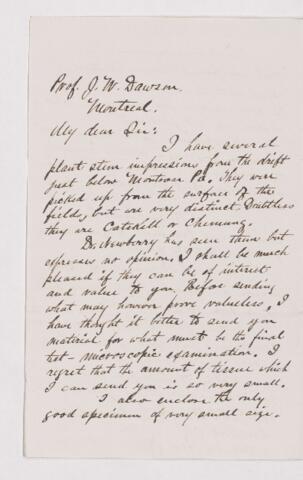 Prof. J. W. Dawson,
Montreal.
My dear Sir:
I have several
plant stem impressions from the drift
just below Montrose Pa. They were
picked up from the surface of the
fields, but are very distinct. Doubtless
they are Catskill or Chemung.
Dr. Newberry has seen them but
expresses no opinion. I shall be much
pleased if they can be of interest
and value to you. Before sending
what may however prove valueless, I
have thought it better to send you
material for what must be the final
test - microscopic examination. I
regret that the amount of tissue which
I can send you is so very small.
I also enclose the only
good specimen of very small size.